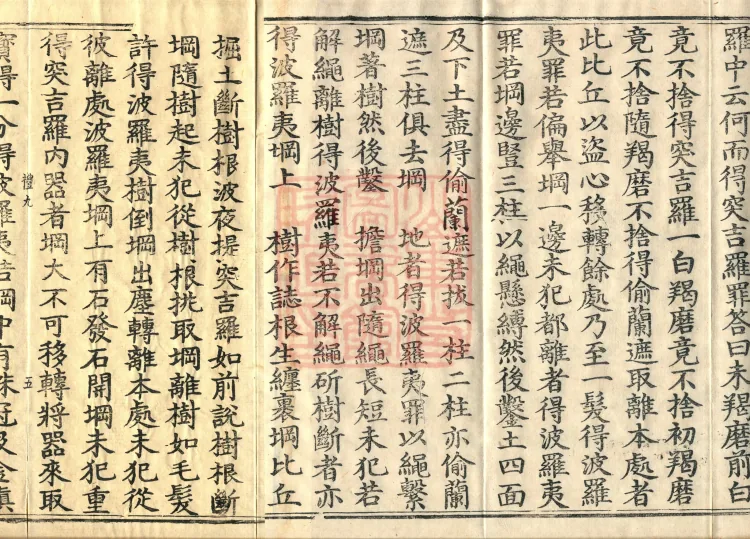 羅中云何而得突吉羅罪答曰未羯磨前白
竟不捨得突吉羅一白羯磨竟不捨初羯磨
竟不捨隨羯磨不捨得偷蘭遮取離本處者
此比丘以盗心移轉餘處乃至一髮得波羅
夷罪若偏舉堈一邊未犯都離者得波羅夷
罪若堈邊豎三柱以繩懸縛然後鑿土四面
及下土盡得偷蘭遮若拔一柱二柱亦偷蘭
遮三柱俱去堈 地者得波羅夷罪以繩繫
堈著樹然後鑿 擔堈出隨繩長短未犯若
解繩離樹得波羅夷若不解繩斫樹斷者亦
得波羅夷堈上 樹作誌根生纏裹堈比丘
掘土斷樹根波夜提突吉羅如前說樹根斷
堈隨樹起未犯從樹根挑取堈離樹如毛髮
許得波羅夷樹倒堈出塵轉離本處未犯從
彼離處波羅夷堈上有石發石開堈未犯重
禮九
五
得突吉羅内器者堈大不可移轉將器來取
寶得一分得波羅夷若堈中有